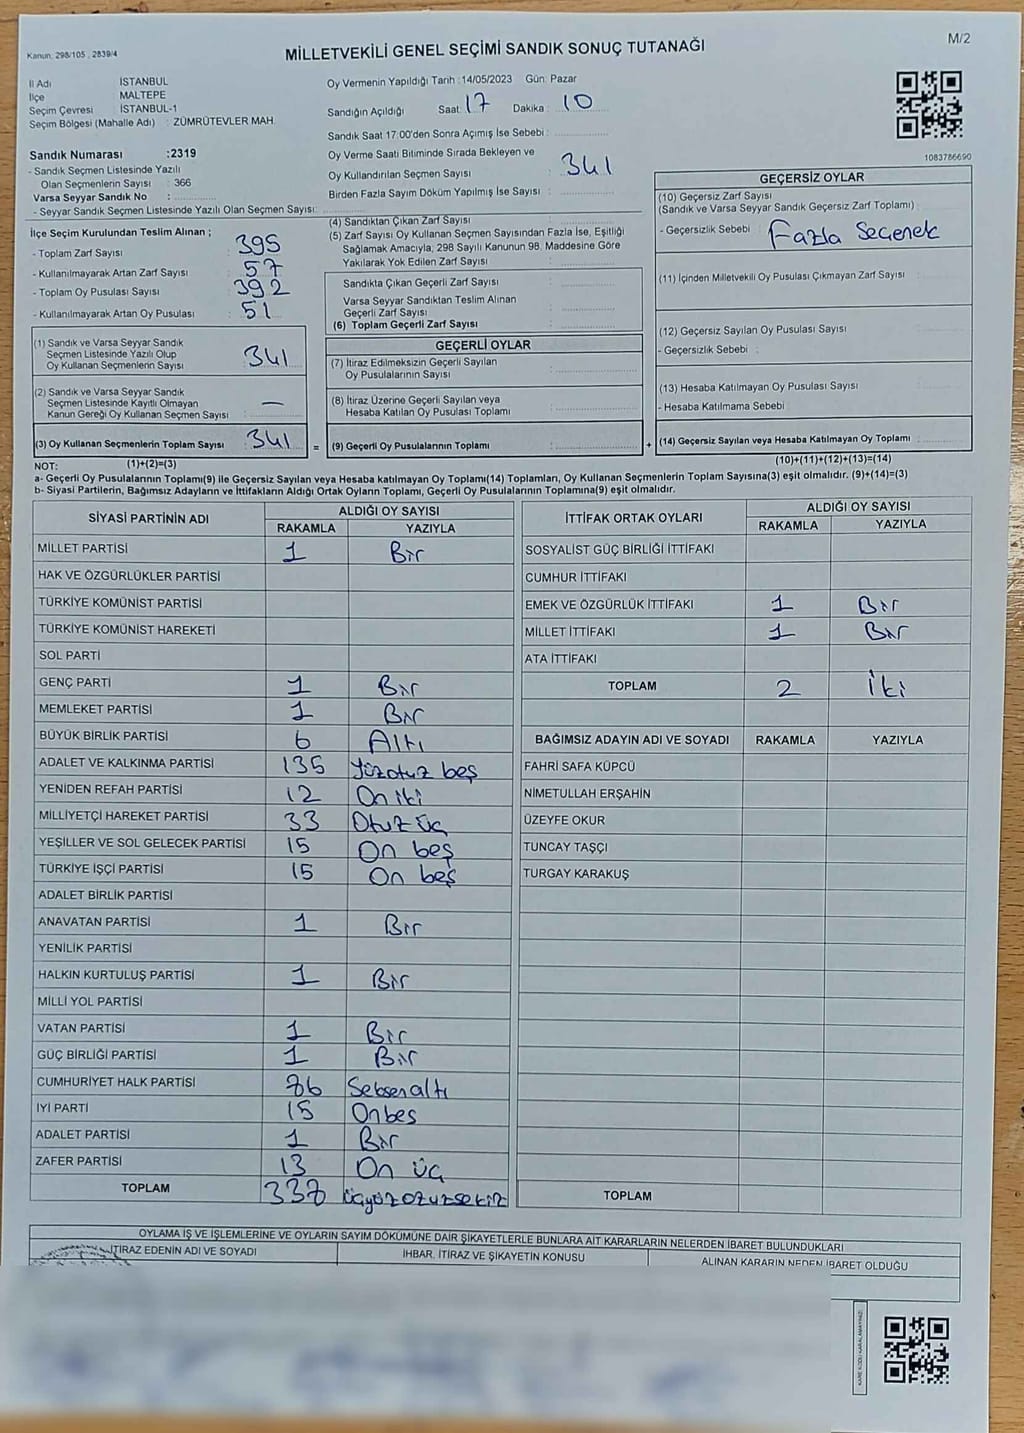 Kanun, 298/105 , 2839/4
MİLLETVEKİLİ GENEL SEÇİMİ SANDIK SONUÇ TUTANAĞI
M/2
İl Adı İSTANBUL
İlçe MALTEPE
Seçim Çevresi İSTANBUL-1
Seçim Bölgesi (Mahalle Adı) : ZÜMRÜTEVLER MAH.
Sandık Numarası :2319
- Sandık Seçmen Listesinde Yazılı
Olan Seçmenlerin Sayısı : 366
Varsa Seyyar Sandık No :
- Seyyar Sandık Seçmen Listesinde Yazılı Olan Seçmen Sayısı:
Oy Vermenin Yapıldığı Tarih :14/05/2023 Gün: Pazar
Sandığın Açıldığı Saat: 17 Dakika : 10
Sandık Saat 17:00'den Sonra Açımış İse Sebebi :
Oy Verme Saati Bitiminde Sırada Bekleyen ve
Oy Kullandırılan Seçmen Sayısı : 341
Birden Fazla Sayım Döküm Yapılmış İse Sayısı :
1083786690
İlçe Seçim Kurulundan Teslim Alınan ;
- Toplam Zarf Sayısı : 395
- Kullanılmayarak Artan Zarf Sayısı : 57
- Toplam Oy Pusulası Sayısı : 392
- Kullanılmayarak Artan Oy Pusulası : 51
(1) Sandık ve Varsa Seyyar Sandık
Seçmen Listesinde Yazılı Olup
Oy Kullanan Seçmenlerin Sayısı : 341
(2) Sandık ve Varsa Seyyar Sandık
Seçmen Listesinde Kayıtlı Olmayan
Kanun Gereği Oy Kullanan Seçmen Sayısı : —
(3) Oy Kullanan Seçmenlerin Toplam Sayısı : 341 =
(1)+(2)=(3)
(4) Sandıktan Çıkan Zarf Sayısı :
(5) Zarf Sayısı Oy Kullanan Seçmen Sayısından Fazla İse, Eşitliği
Sağlamak Amacıyla; 298 Sayılı Kanunun 98. Maddesine Göre
Yakılarak Yok Edilen Zarf Sayısı :
Sandıkta Çıkan Geçerli Zarf Sayısı :
Varsa Seyyar Sandıktan Teslim Alınan
Geçerli Zarf Sayısı :
(6) Toplam Geçerli Zarf Sayısı :
GEÇERLİ OYLAR
(7) İtiraz Edilmeksizin Geçerli Sayılan
Oy Pusulalarının Sayısı :
(8) İtiraz Üzerine Geçerli Sayılan veya
Hesaba Katılan Oy Pusulası Toplamı :
(9) Geçerli Oy Pusulalarının Toplamı : +
GEÇERSİZ OYLAR
(10) Geçersiz Zarf Sayısı
(Sandık ve Varsa Seyyar Sandık Geçersiz Zarf Toplamı) :
- Geçersizlik Sebebi : Fazla Seçenek
(11) İçinden Milletvekili Oy Pusulası Çıkmayan Zarf Sayısı :
(12) Geçersiz Sayılan Oy Pusulası Sayısı :
- Geçersizlik Sebebi :
(13) Hesaba Katılmayan Oy Pusulası Sayısı :
- Hesaba Katılmama Sebebi :
(14) Geçersiz Sayılan veya Hesaba Katılmayan Oy Toplamı :
(10)+(11)+(12)+(13)=(14)
NOT:
a- Geçerli Oy Pusulalarının Toplamı(9) ile Geçersiz Sayılan veya Hesaba katılmayan Oy Toplamı(14) Toplamları, Oy Kullanan Seçmenlerin Toplam Sayısına(3) eşit olmalıdır. (9)+(14)=(3)
b- Siyasi Partilerin, Bağımsız Adayların ve İttifakların Aldığı Ortak Oyların Toplamı, Geçerli Oy Pusulalarının Toplamına(9) eşit olmalıdır.
SİYASİ PARTİNİN ADI ALDIĞI OY SAYISI
RAKAMLA YAZIYLA
MİLLET PARTİSİ 1 Bir
HAK VE ÖZGÜRLÜKLER PARTİSİ
TÜRKİYE KOMÜNİST PARTİSİ
TÜRKİYE KOMÜNİST HAREKETİ
SOL PARTİ
GENÇ PARTİ 1 Bir
MEMLEKET PARTİSİ 1 Bir
BÜYÜK BİRLİK PARTİSİ 6 Altı
ADALET VE KALKINMA PARTİSİ 135 Yüzotuz beş
YENİDEN REFAH PARTİSİ 12 On iki
MİLLİYETÇİ HAREKET PARTİSİ 33 Otuz üç
YEŞİLLER VE SOL GELECEK PARTİSİ 15 On beş
TÜRKİYE İŞÇİ PARTİSİ 15 On beş
ADALET BİRLİK PARTİSİ
ANAVATAN PARTİSİ 1 Bir
YENİLİK PARTİSİ
HALKIN KURTULUŞ PARTİSİ 1 Bir
MİLLİ YOL PARTİSİ
VATAN PARTİSİ 1 Bir
GÜÇ BİRLİĞİ PARTİSİ 1 Bir
CUMHURİYET HALK PARTİSİ 86 Seksenaltı
İYİ PARTİ 15 Onbeş
ADALET PARTİSİ 1 Bir
ZAFER PARTİSİ 13 On üç
TOPLAM 338 üçyüzotuzsekiz
İTTİFAK ORTAK OYLARI ALDIĞI OY SAYISI
RAKAMLA YAZIYLA
SOSYALİST GÜÇ BİRLİĞİ İTTİFAKI
CUMHUR İTTİFAKI
EMEK VE ÖZGÜRLÜK İTTİFAKI 1 Bir
MİLLET İTTİFAKI 1 Bir
ATA İTTİFAKI
TOPLAM 2 İki
BAĞIMSIZ ADAYIN ADI VE SOYADI RAKAMLA YAZIYLA
FAHRİ SAFA KÜPCÜ
NİMETULLAH ERŞAHİN
ÜZEYFE OKUR
TUNCAY TAŞÇI
TURGAY KARAKUŞ
TOPLAM
OYLAMA İŞ VE İŞLEMLERİNE VE OYLARIN SAYIM DÖKÜMÜNE DAİR ŞİKAYETLERLE BUNLARA AİT KARARLARIN NELERDEN İBARET BULUNDUKLARI
İTİRAZ EDENİN ADI VE SOYADI İHBAR, İTİRAZ VE ŞİKAYETİN KONUSU ALINAN KARARIN NEDEN İBARET OLDUĞU